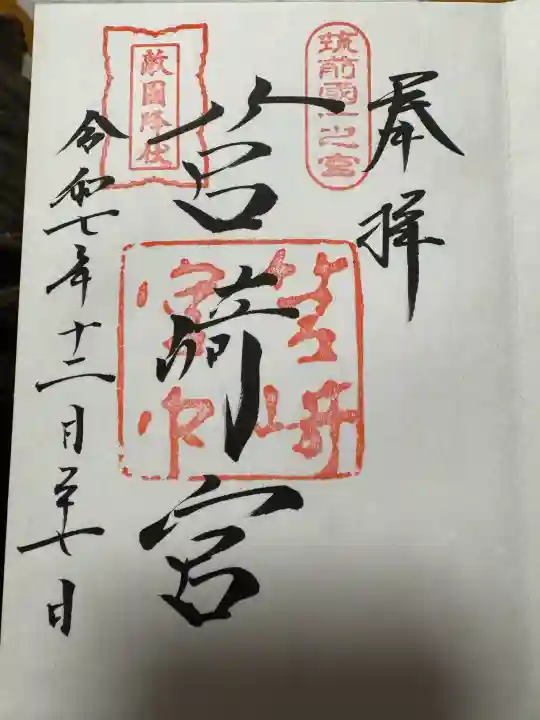 奉拝
筑前國一之宮
筥﨑宮
敵國降伏
令和七年十二月二十七日